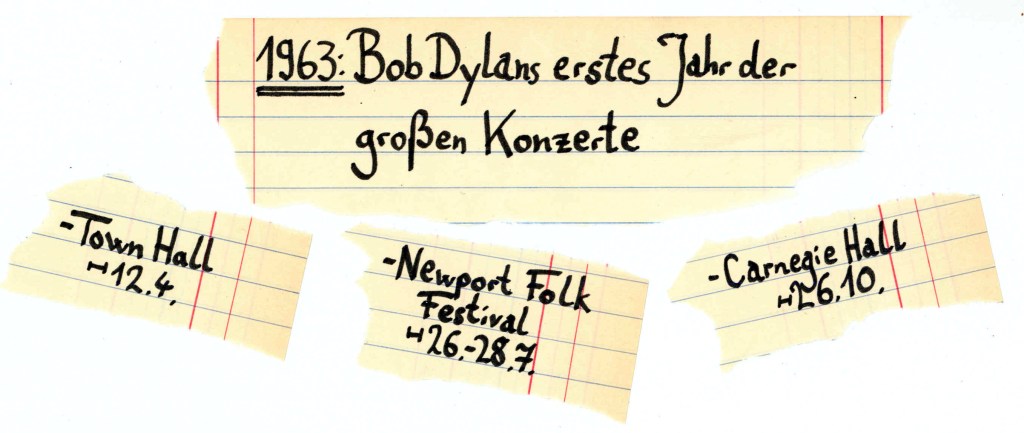 1963: Bob Dylans erstes Jahr der
großen Konzerte
-Town Hall
↦12.4.
-Newport Folk
Festival
↦26.-28.7.
-Carnegie Hall
↦26.10.